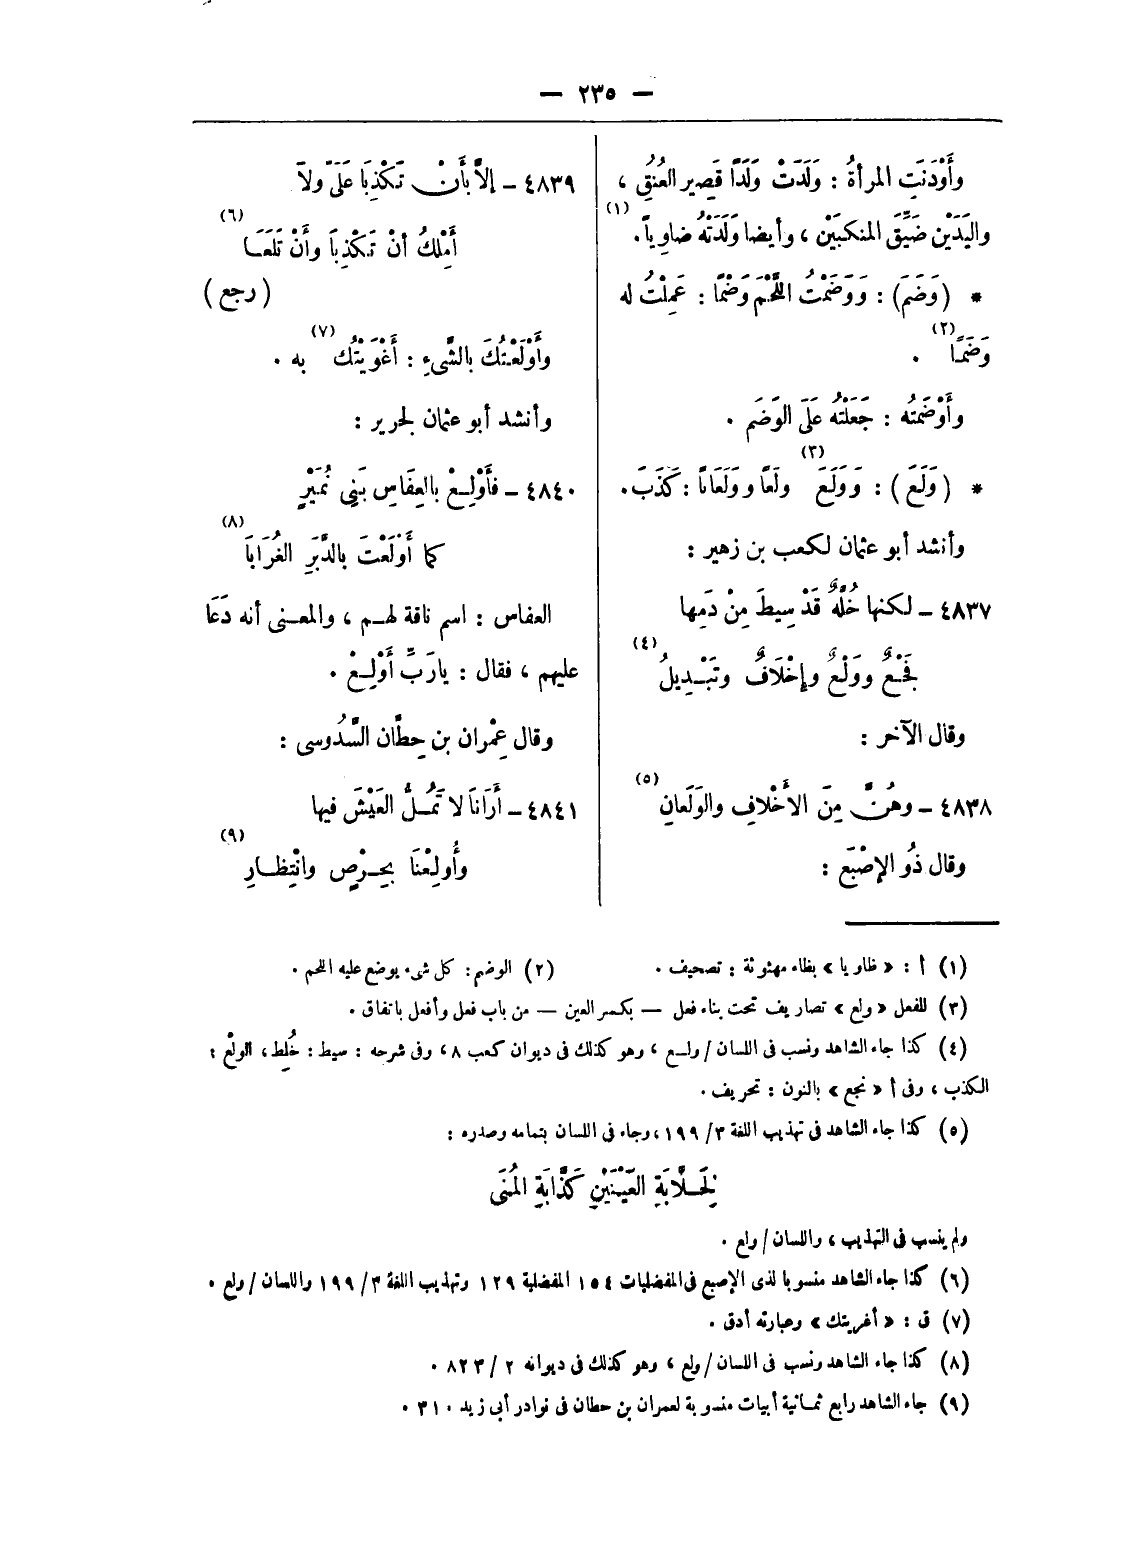 — ٢٣٥ —
وأَوْدَنَتِ المرأةُ : وَلَدَتْ وَلَدًا قَصِير العُنُقِ ،
واليَدَيْن ضَيِّقَ المنكبَيْن ، وأيضا وَلَدَتْهُ ضاوِياً.(١)
* (وَضَمَ) : وَوَضَمْتُ اللَّحْمَ وَضْمًا : عَمِلْتُ له
وَضَمًا(٢) .
وأَوْضَمْتُه : جَعَلْتُه عَلَى الوَضَم .
* (وَلَعَ) : وَوَلَعَ(٣) ولَعًا وولَعَانًا : كَذَبَ.
وأنشد أبو عثمان لكعب بن زهير :
٤٨٣٧ – لكنها خُلَّةٌ قَدْ سِيطَ مِنْ دَمِها
فَجْعٌ ووَلْعٌ وإخْلَافٌ وتَبْدِيلُ(٤)
وقال الآخر :
٤٨٣٨ – وهُنَّ مِنَ الأَخْلافِ والوَلَعانِ(٥)
وقال ذُو الإصْبَع :
٤٨٣٩ – إلاَّ بأَنْ تَكْذِبَا عَلَىَّ ولاَ
أَمْلِكُ أنْ تَكْذِبَا وأَنْ تَلَعَا(٦)
(رجع)
وأَوْلَعْتُكَ بالشَّىءِ : أَغْوَيْتُك(٧) به .
وأنشد أبو عثمان لجرير :
٤٨٤٠ – فأَوْلِعْ بالعِفَاسِ بَنِى نُمَيْرٍ
كما أَوْلَعْتَ بالدَّبَرِ الغُرَابَا(٨)
العفاس : اسم ناقة لهم ، والمعنى أنه دَعَا
عليهم ، فقال : يارَبِّ أَوْلِعْ .
وقال عِمْران بن حِطَّان السَّدُوسى :
٤٨٤١ – أَرَانَا لا تَمُلُّ العَيْشَ فيها
وأُولِعْنَا بِحِرْصٍ وانْتِظارِ(٩)
(١) أ : « ظاويا » بظاء مهثوثة : تصحيف . (٢) الوضم: كل شىء يوضع عليه اللحم .
(٣) للفعل « ولع » تصاريف تحت بناء فعل — بكسر العين — من باب فعل وأفعل باتفاق .
(٤) كذا جاء الشاهد ونسب فى اللسان / ولع ، وهو كذلك فى ديوان كعب ٨ ، وفى شرحه : سيط : خُلِط ، الولْع :
الكذب ، وفى أ « نجع » بالنون : تحريف .
(٥) كذا جاء الشاهد فى تهذيب اللغة ٣ / ١٩٩ ، وجاء فى اللسان بتمامه وصدره :
لِخَلَّابَةِ العَيْنَيْنِ كَذَّابَةِ المُنَى
ولم ينسب فى التهذيب ، واللسان / ولع .
(٦) كذا جاء الشاهد منسوبا لذى الإصبع فى المفضليات ١٥٤ المفضلية ١٢٩ وتهذيب اللغة ٣ / ١٩٩ واللسان / ولع .
(٧) ق : « أغريتك » وعبارته أدق .
(٨) كذا جاء الشاهد ونسب فى اللسان / ولع ، وهو كذلك فى ديوانه ٢ / ٨٢٣ .
(٩) جاء الشاهد رابع ثمانية أبيات منسوبة لعمران بن حطان فى نوادر أبى زيد ٣١٠ .